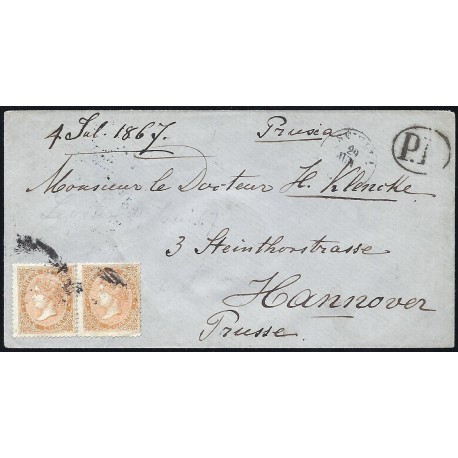 4 Jul. 1867.
Prusia
29
P.
Monsieur le Docteur H. Klencke
3 Steinthorstrasse
Hannover
Prusse.